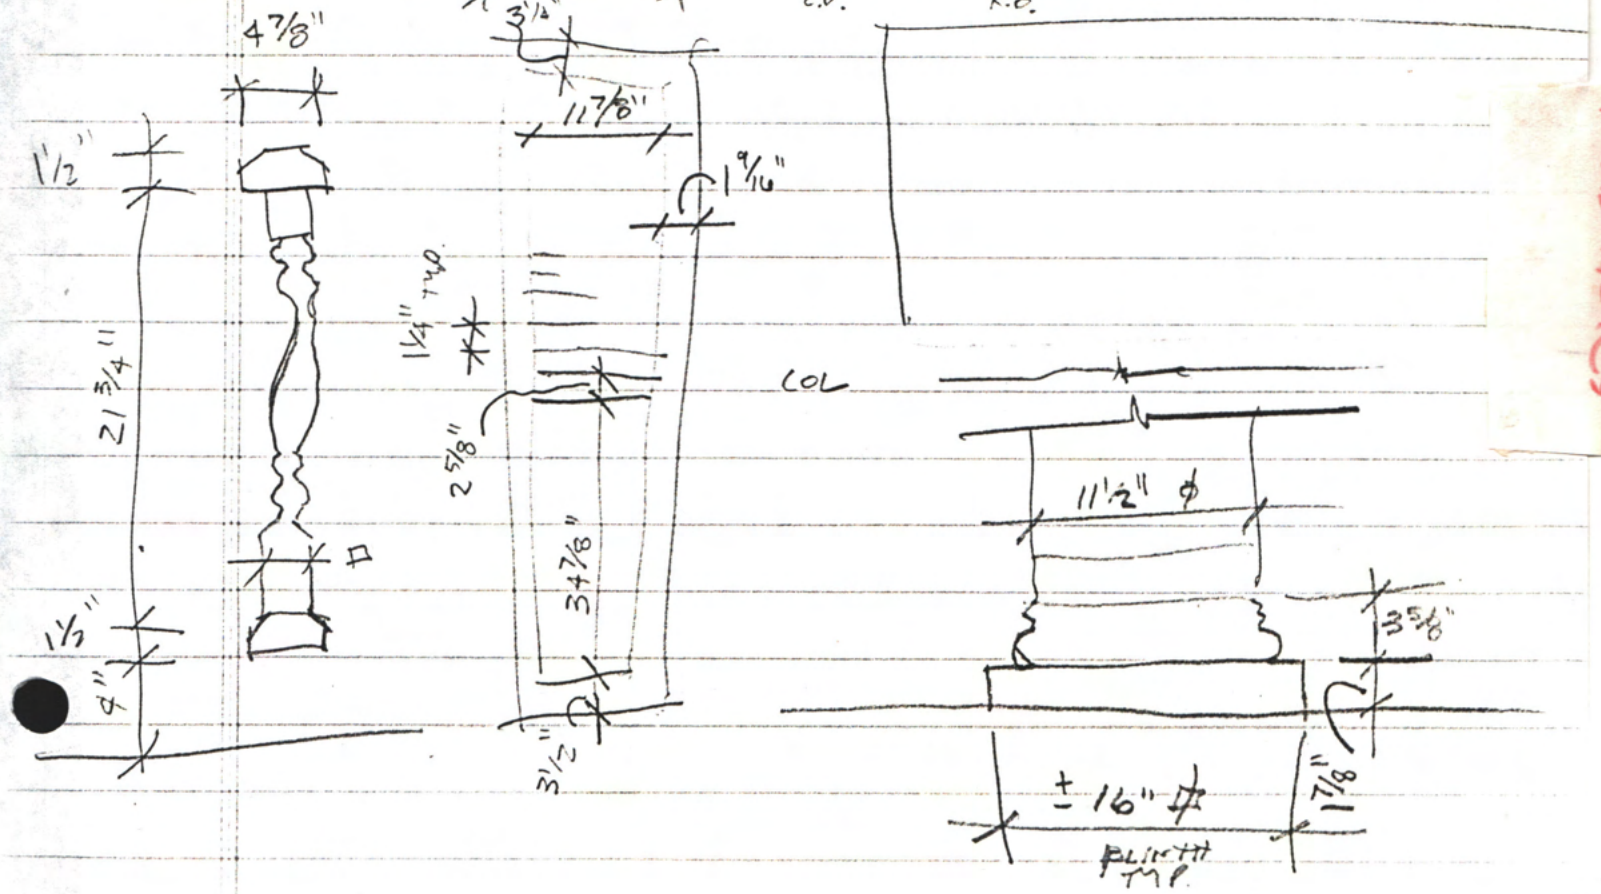 4 7/8"
1 1/2"
21 3/4"
1 1/2"
4"
11 7/8"
1 9/16"
1 1/4" TYP.
2 5/8"
34 7/8"
3 1/2"
COL
11 1/2" ⌀
3 5/8"
1 7/8"
± 16"
PLINTH
TYP.